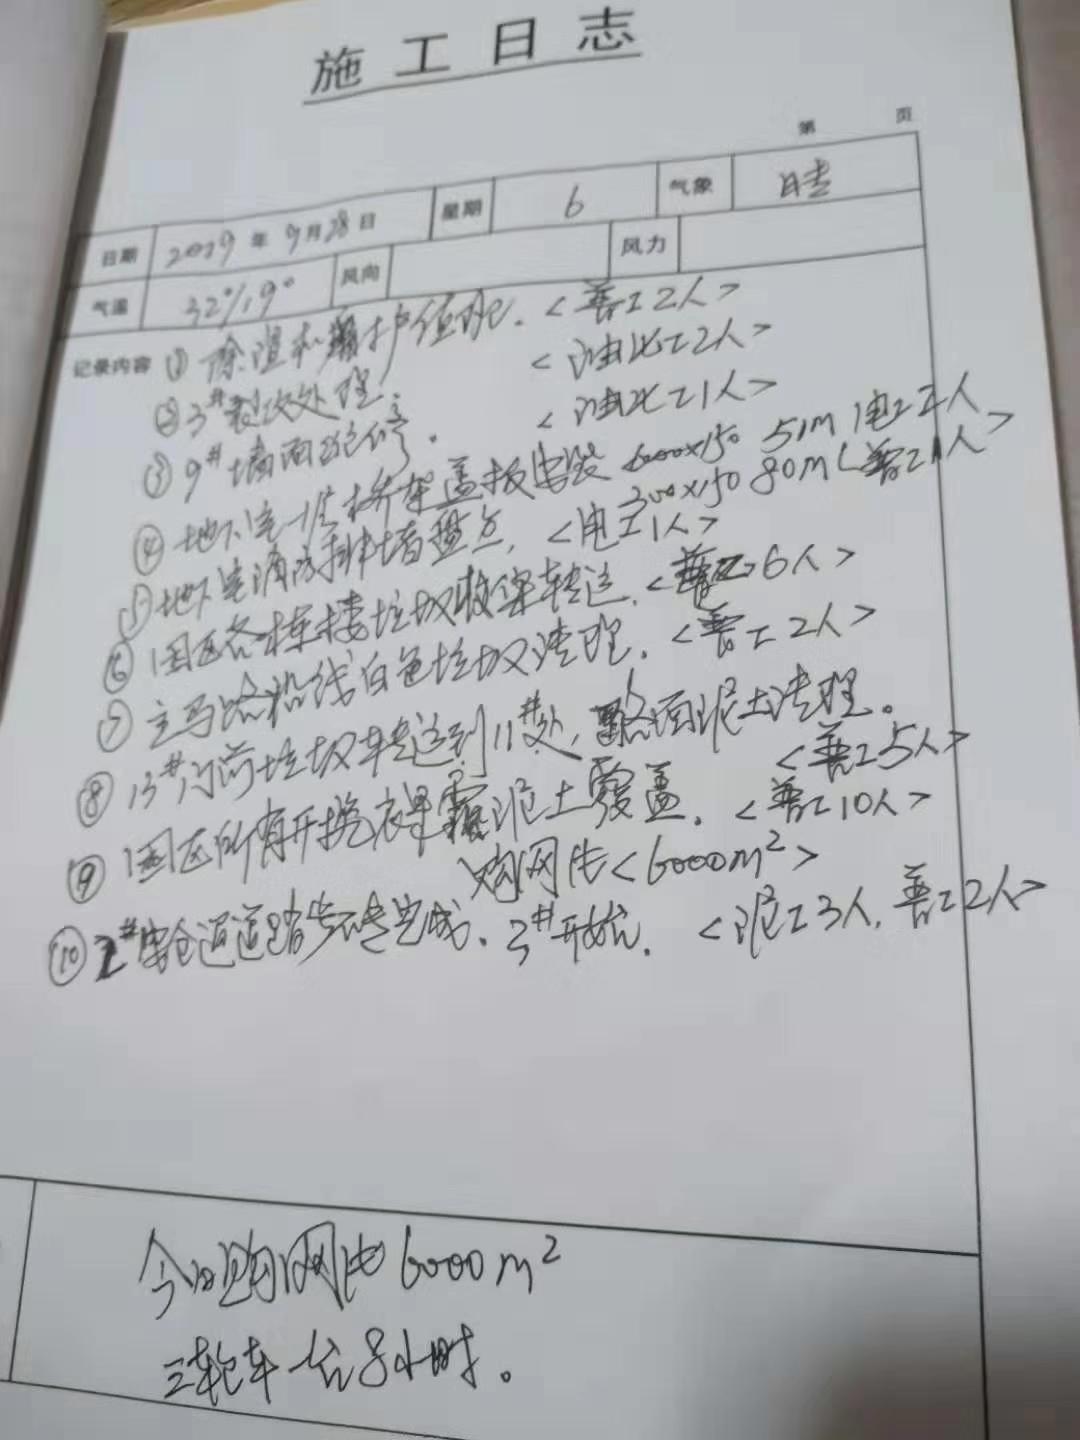 施工日志
第 页
日期 2019年9月28日 星期 6 气象 晴
气温 32°/19° 风向 风力
记录内容 ① 除渣和 护值班. <普工2人>
② 3#裂纹处理. <油化工2人>
③ 9#墙面 修. <油化工1人>
④ 地下室 桥架盖板安装 600×150 51m 电工2人
300×150 80m <普工1人>
⑤ 地下室消防排墙盘点. <电工1人>
⑥ 园区各栋楼垃圾收集转运. <普工6人>
⑦ 主马路沿线白色垃圾清理. <普工2人>
⑧ 13#门前垃圾转运到11#处, 路面泥土清理。
<普工5人>
⑨ 园区所有开挖裸露泥土覆盖. <普工10人>
购网 <6000m²>
⑩ 2#安全通道踏步 完成. 3#开始. <泥工3人, 普工2人>
今日购网 6000m²
三轮车一台8小时。